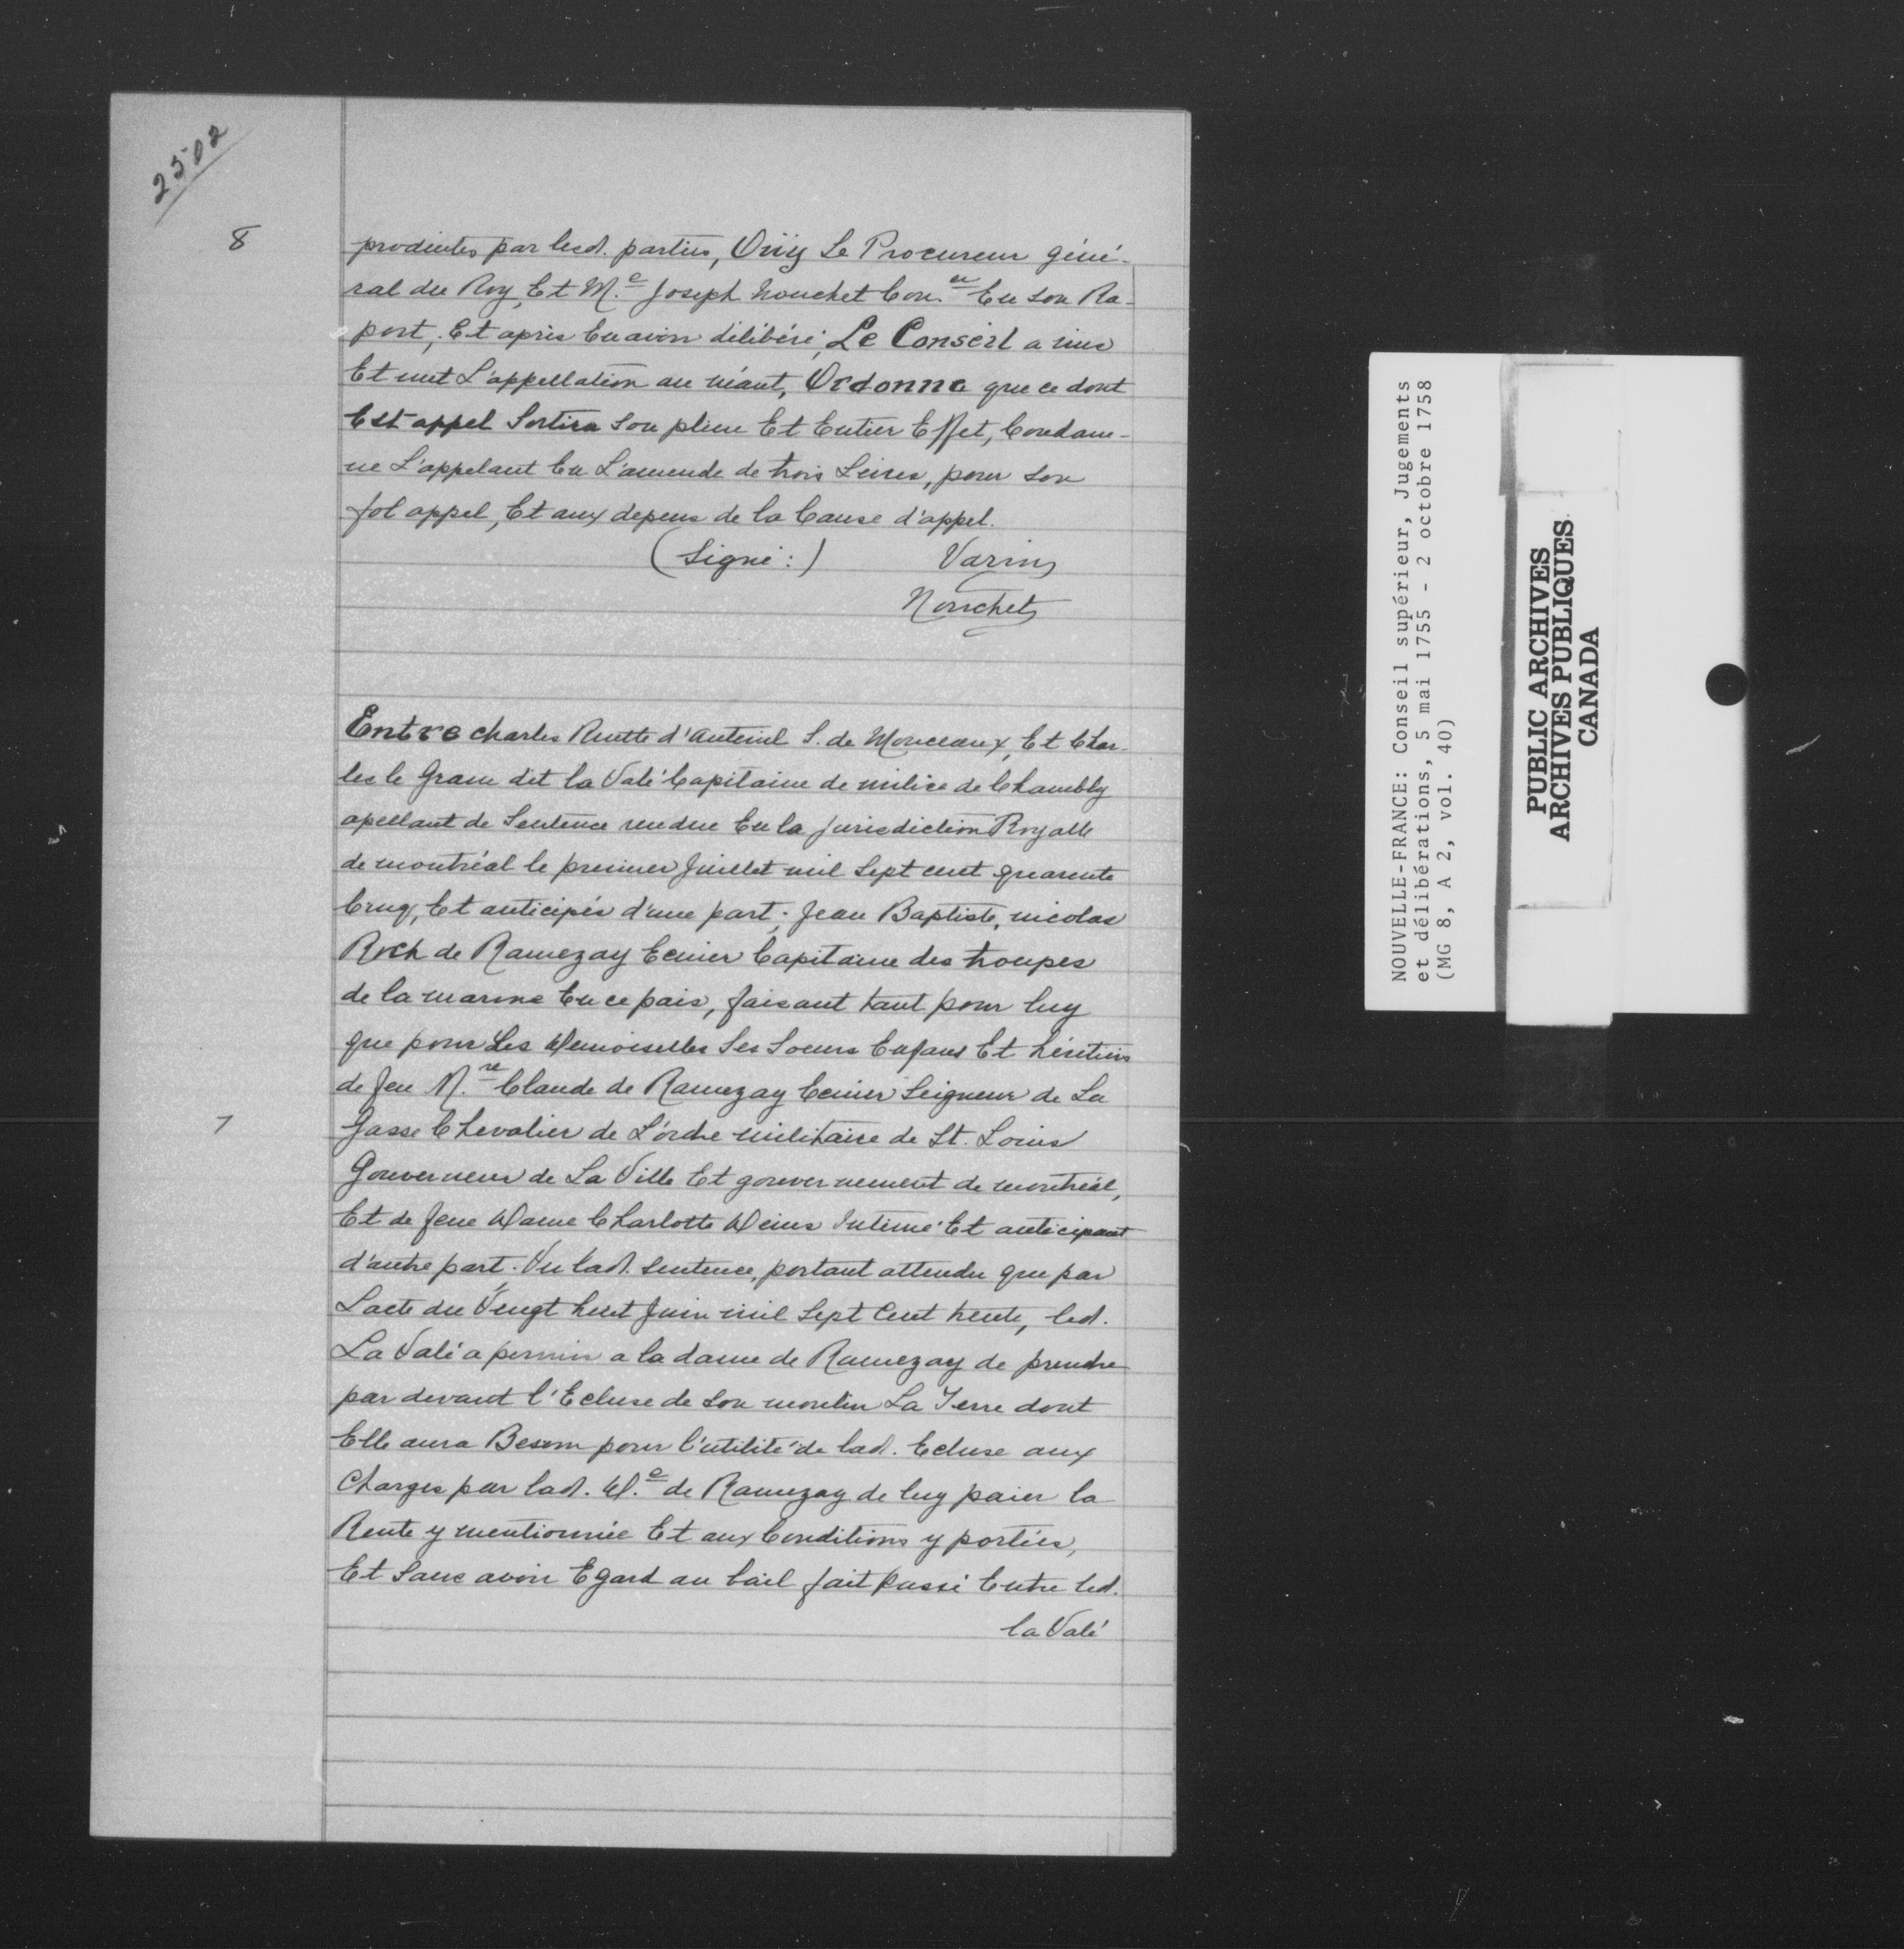 2502
8
produites par lesd. parties, Oüij Le Procureur géné-
ral du Roy, Et M.e Joseph Nouchet Con.er En son Ra-
port, Et après En avoir délibéré, Le Conseil a mis
Et met L'appellation au néant, Ordonne que ce dont
Est appel Sortira Son plein Et Entier Effet, Condam-
ne L'appelant En L'amende de trois Livres, pour son
fol appel, Et aux depens de la Cause d'appel.
(Signé:) Varin
Nouchet
Entre charles Ruette d'auteuil S. de Monceaux, Et Char-
les le Gram dit la Valé Capitaine de milice de Chambly
apellant de Sentence rendue En la jurisdiction Royalle
de montréal le premier Juillet mil Sept cent quarente
Cinq, Et anticipés d'une part; Jean Baptiste, nicolas
Roch de Ramezay Ecuier Capitaine des troupes
de la marine En ce païs, faisant tant pour luy
que pour Les Demoiselles Ses Soeurs Enfans Et héritiers
de feu M.re Claude de Ramezay Ecuier Seigneur de La
7
Gesse Chevalier de L'ordre militaire de St. Louis
Gouverneur de La Ville Et gouvernement de montréal,
Et de feue Dame Charlotte Denis Intimé Et anticipant
d'autre part. Vu lad. Sentence, portant attendu que par
Lacte du Vingt huit Juin mil Sept Cent trente, led.
La Valé a permis a la dame de Ramezay de prendre
par devant l'Ecluse de Son moulin La Terre dont
Elle aura Besoin pour l'utilité de lad. Ecluse aux
Charges par lad. D.e de Ramezay de luy paier la
Rente y mentionnée Et aux Conditions y portées,
Et Sans avoir Egard au bail fait passé Entre led.
la Valé
NOUVELLE-FRANCE: Conseil supérieur, Jugements
et délibérations, 5 mai 1755 - 2 octobre 1758
(MG 8, A 2, vol. 40)
PUBLIC ARCHIVES
ARCHIVES PUBLIQUES
CANADA